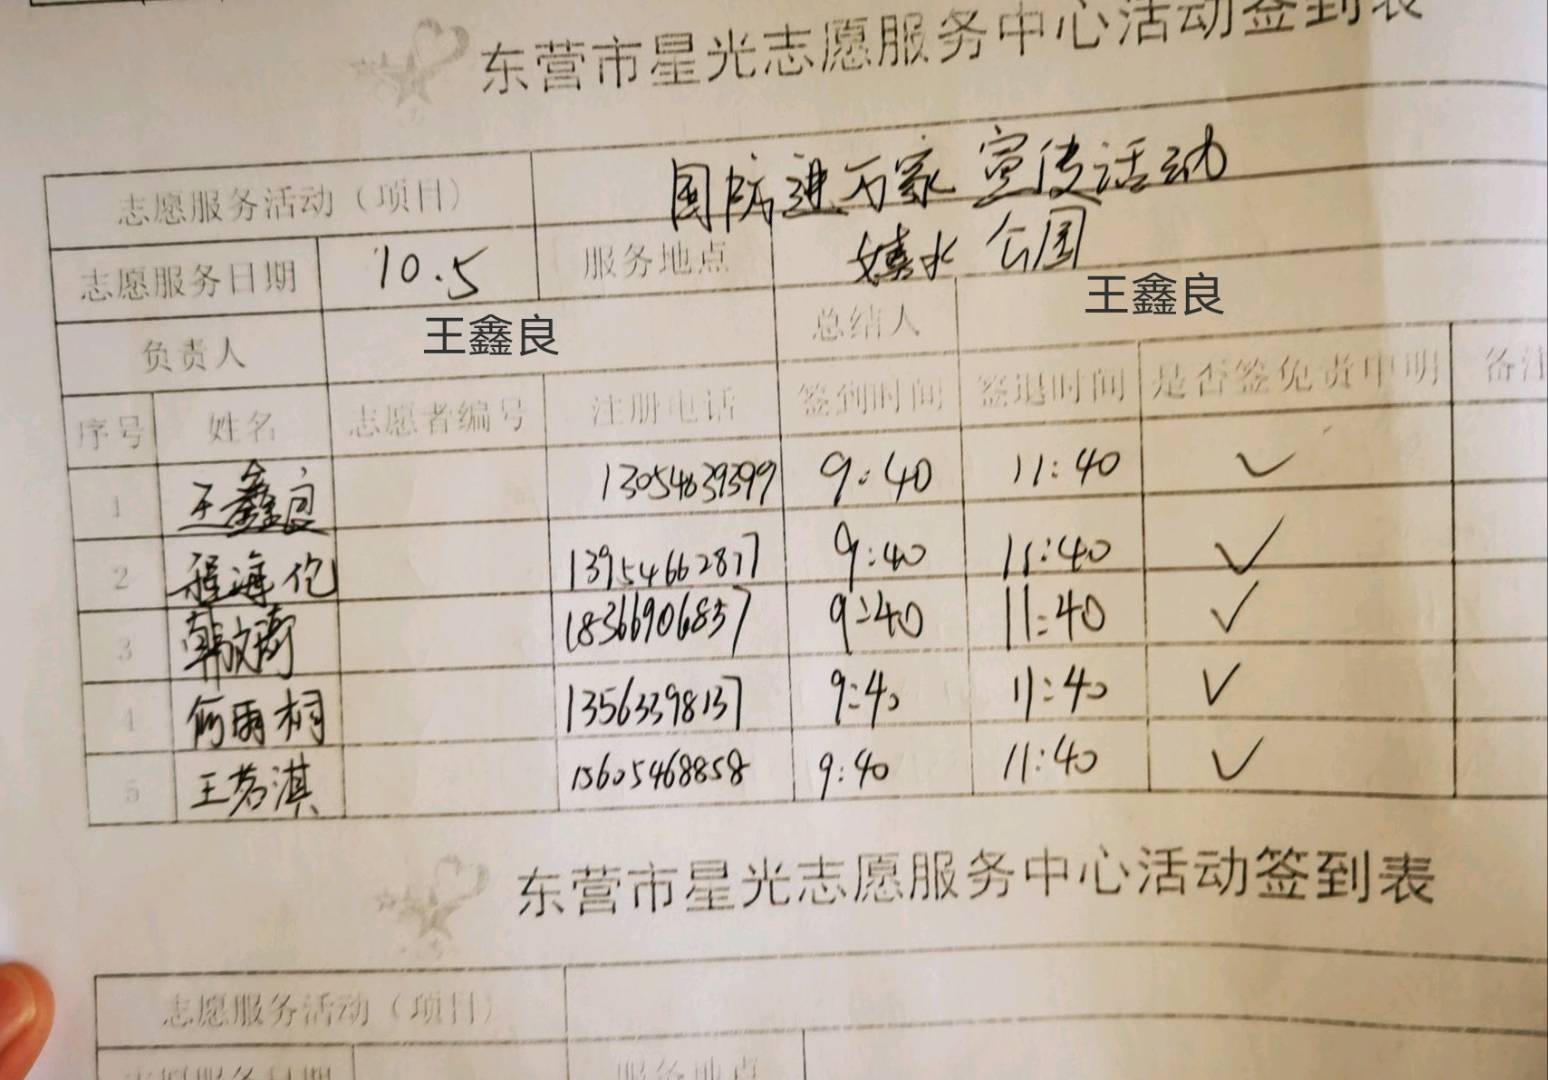 东营市星光志愿服务中心活动签到表
志愿服务活动（项目） 国防进万家 宣传活动
志愿服务日期 10.5 服务地点 嫘水公园
负责人 王鑫良 总结人 王鑫良
序号 姓名 志愿者编号 注册电话 签到时间 签退时间 是否签免责申明 备注
1 王鑫良 13054639399 9:40 11:40 ✓
2 程海伦 13954662877 9:40 11:40 ✓
3 韩文 18366906837 9:40 11:40 ✓
4 何雨桐 13563398137 9:40 11:40 ✓
5 王若淇 15605468858 9:40 11:40 ✓
东营市星光志愿服务中心活动签到表
志愿服务活动（项目）
志愿服务日期 服务地点